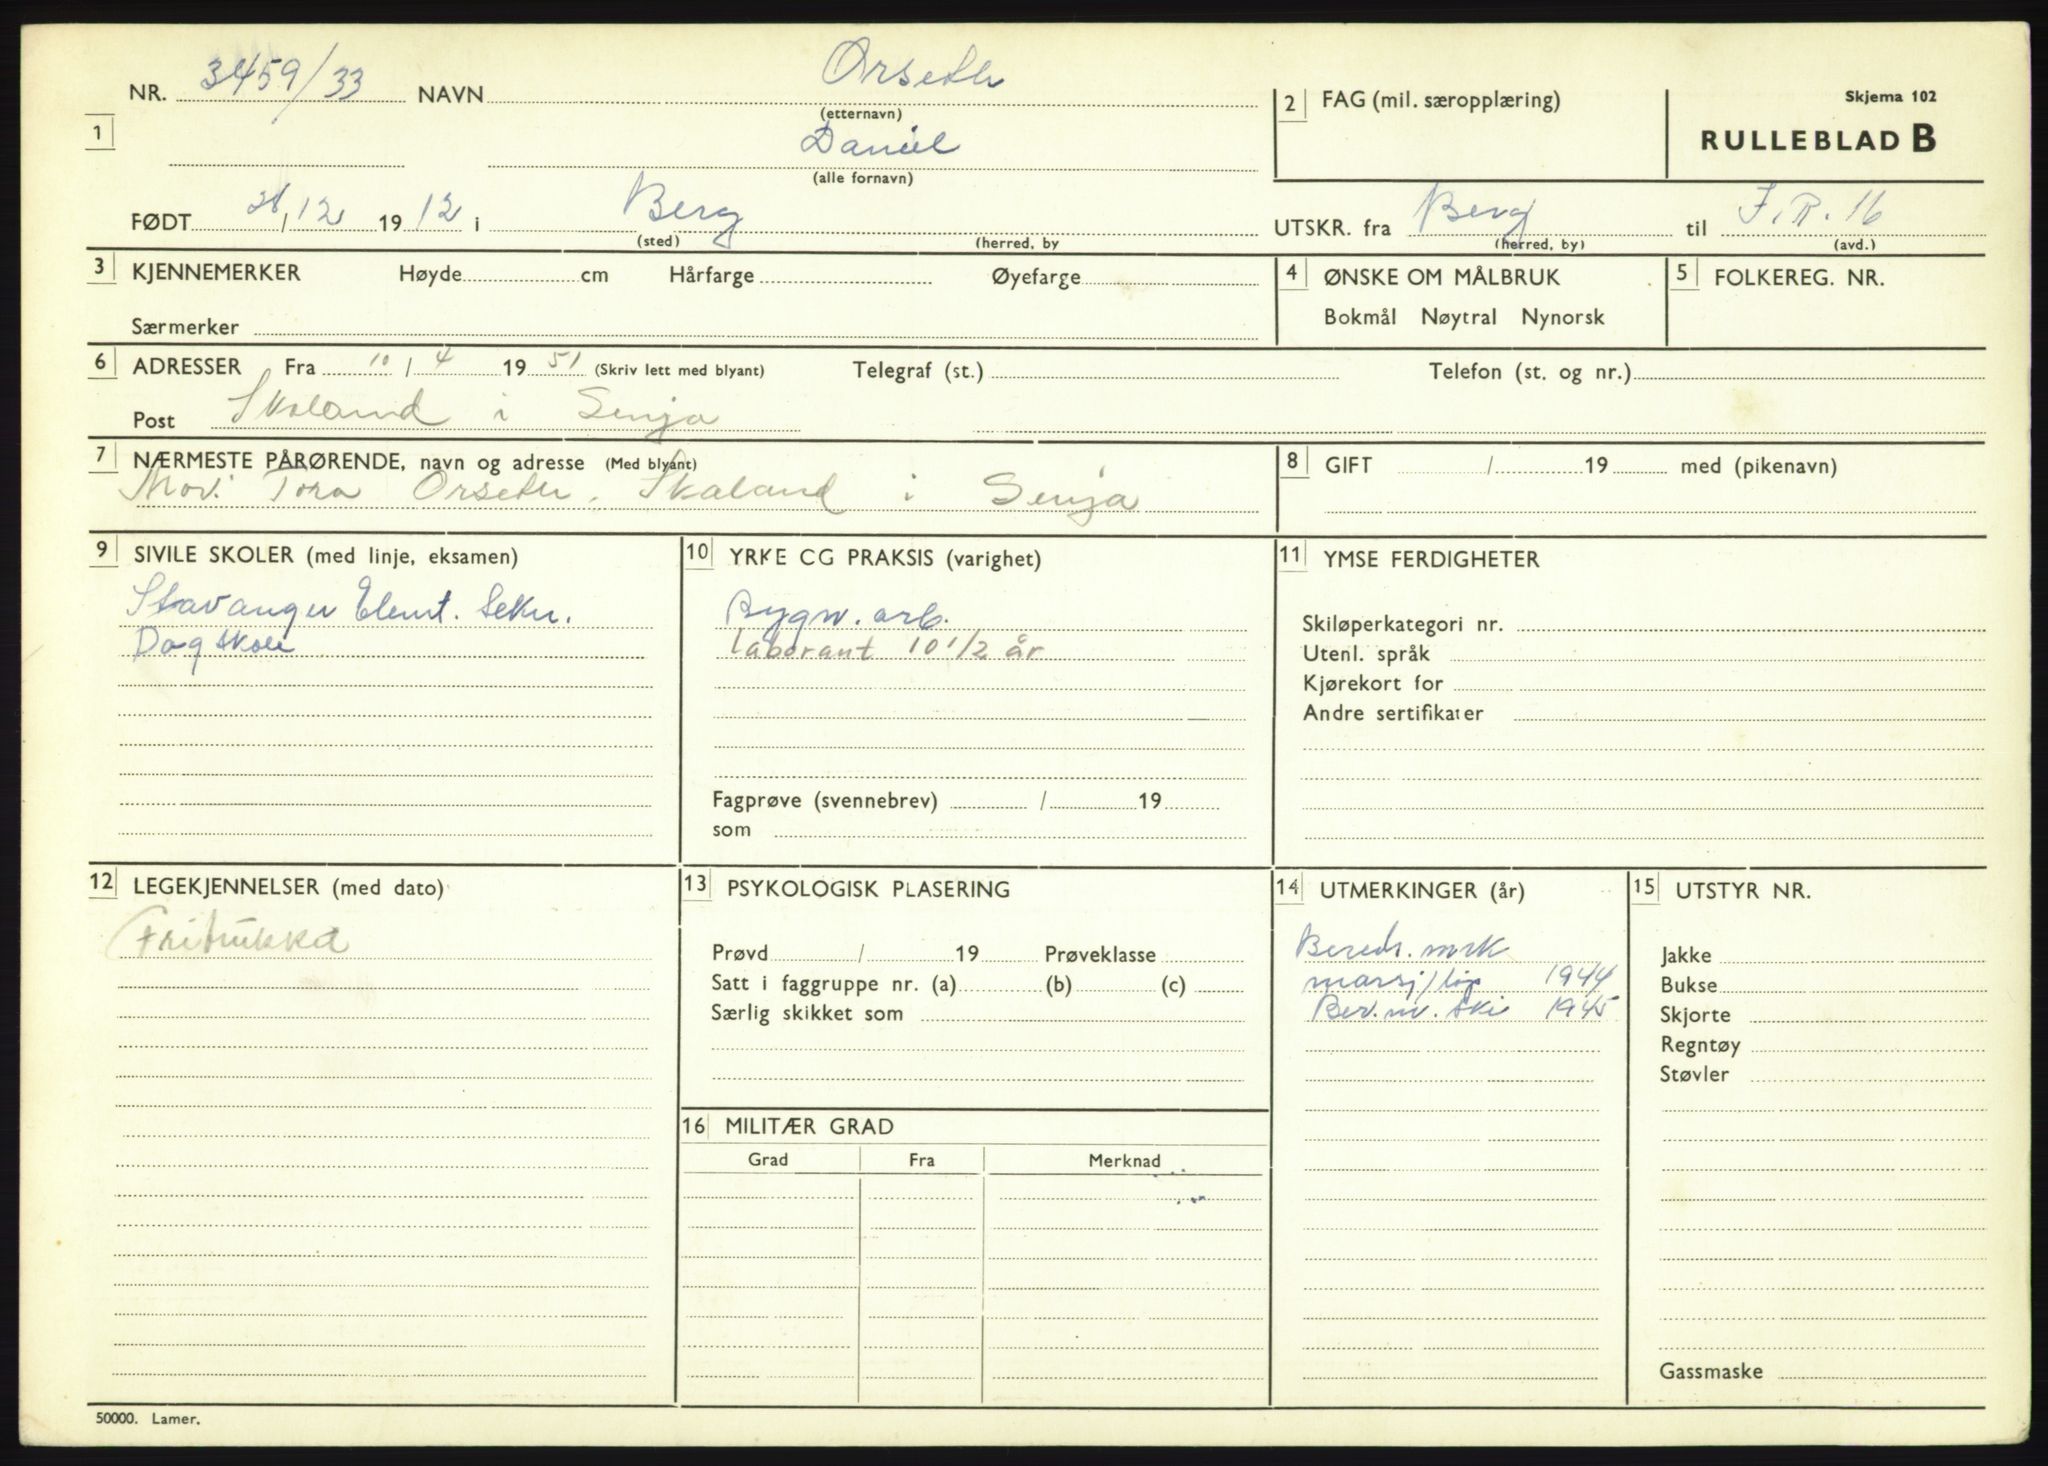 NR. 3459/33 NAVN Orseth
(etternavn)
Skjema 102
2 FAG (mil. særopplæring)
RULLEBLAD B
1
Daniel
(alle fornavn)
FØDT 28/12 1912 i Berg
(sted) (herred, by
UTSKR. fra Berg til I.R. 16
(herred, by) (avd.)
3 KJENNEMERKER Høyde cm Hårfarge Øyefarge
Særmerker
4 ØNSKE OM MÅLBRUK
Bokmål Nøytral Nynorsk
5 FOLKEREG. NR.
6 ADRESSER Fra 10/4 1951 (Skriv lett med blyant) Telegraf (st.) Telefon (st. og nr.)
Post Skaland i Senja
7 NÆRMESTE PÅRØRENDE, navn og adresse (Med blyant)
Mor: Tora Orseth, Skaland i Senja
8 GIFT / 19 med (pikenavn)
9 SIVILE SKOLER (med linje, eksamen)
Stavanger Elemt. tekn.
Dagskole
10 YRKE CG PRAKSIS (varighet)
Bygn. arb.
laborant 10 1/2 år
Fagprøve (svennebrev) / 19
som
11 YMSE FERDIGHETER
Skiløperkategori nr.
Utenl. språk
Kjørekort for
Andre sertifikater
12 LEGEKJENNELSER (med dato)
13 PSYKOLOGISK PLASERING
Prøvd / 19 Prøveklasse
Satt i faggruppe nr. (a) (b) (c)
Særlig skikket som
14 UTMERKINGER (år)
Bereds. mrk
marsj/løp 1944
Ber. m. ski 1945
15 UTSTYR NR.
Jakke
Bukse
Skjorte
Regntøy
Støvler
Gassmaske
16 MILITÆR GRAD
Grad Fra Merknad
50000. Lamer.